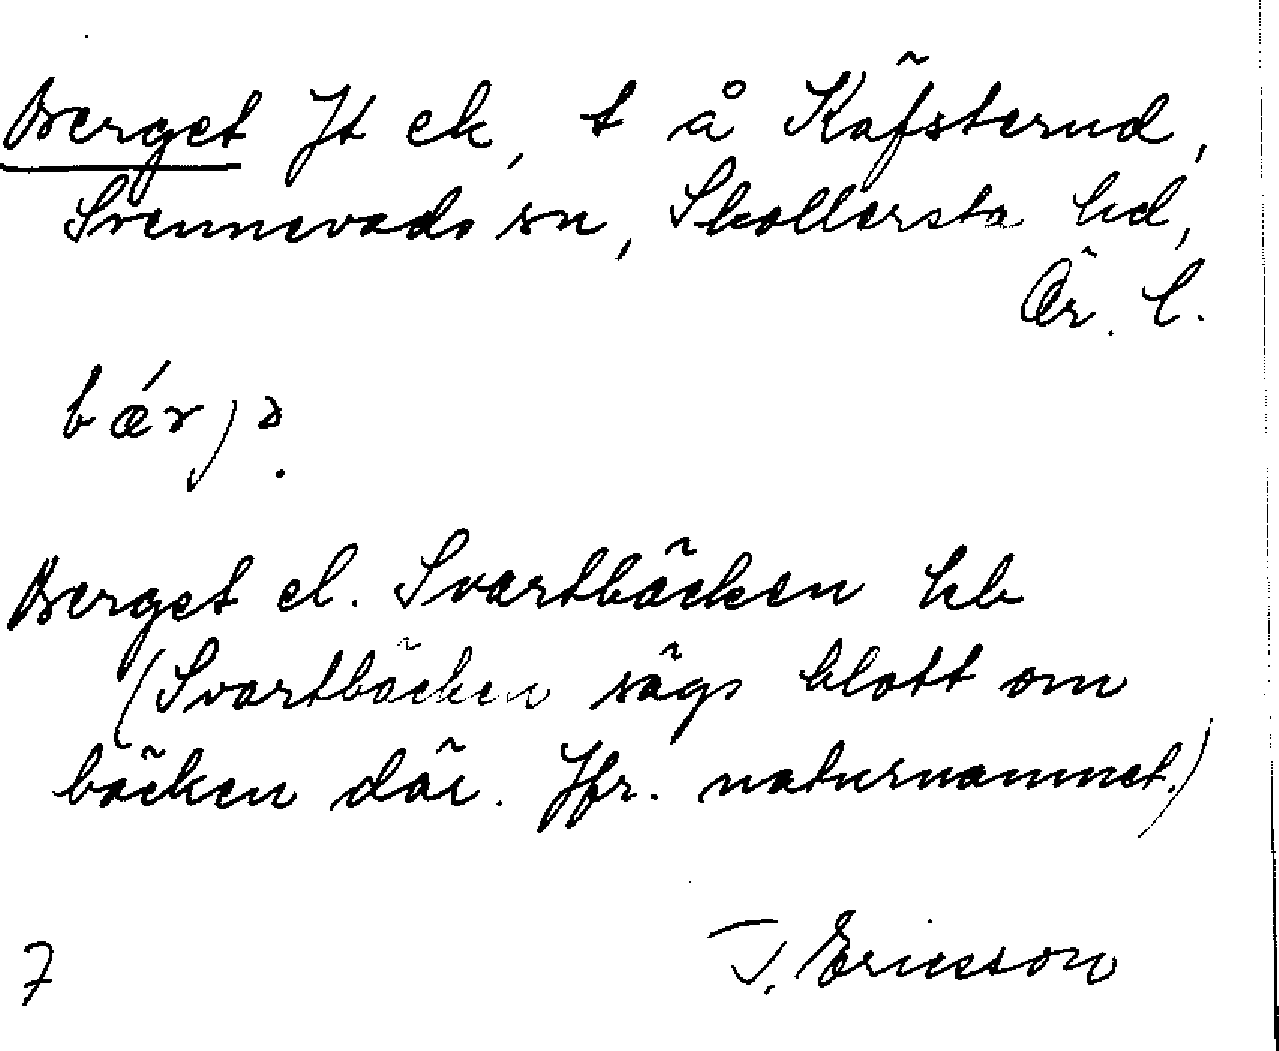 Berget Jt ek, t å Käfsterud,
Svennevads sn, Skollersta hd,
Ör. l.
bǽrjə.
Berget el. Svartbäcken hb
(Svartbäcken sägs blott om
bäcken där. Jfr. naturnamnet.)
7 T. Ericsson